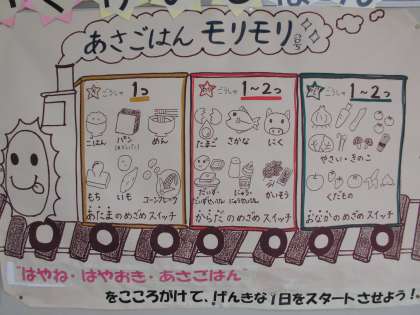 あさごはん モリモリ号
ごうしゃ 1つ
ごうしゃ 1〜2つ
ごうしゃ 1〜2つ
ごはん パン めん
たまご さかな にく
やさい・きのこ
もち いも コーンフレーク
だいず・だいずせいひん
にゅう・にゅうせいひん
かいそう
くだもの
あたまのめざめスイッチ
からだのめざめスイッチ
おなかのめざめスイッチ
"はやね・はやおき・あさごはん"
をこころがけて、げんきな1日をスタートさせよう!